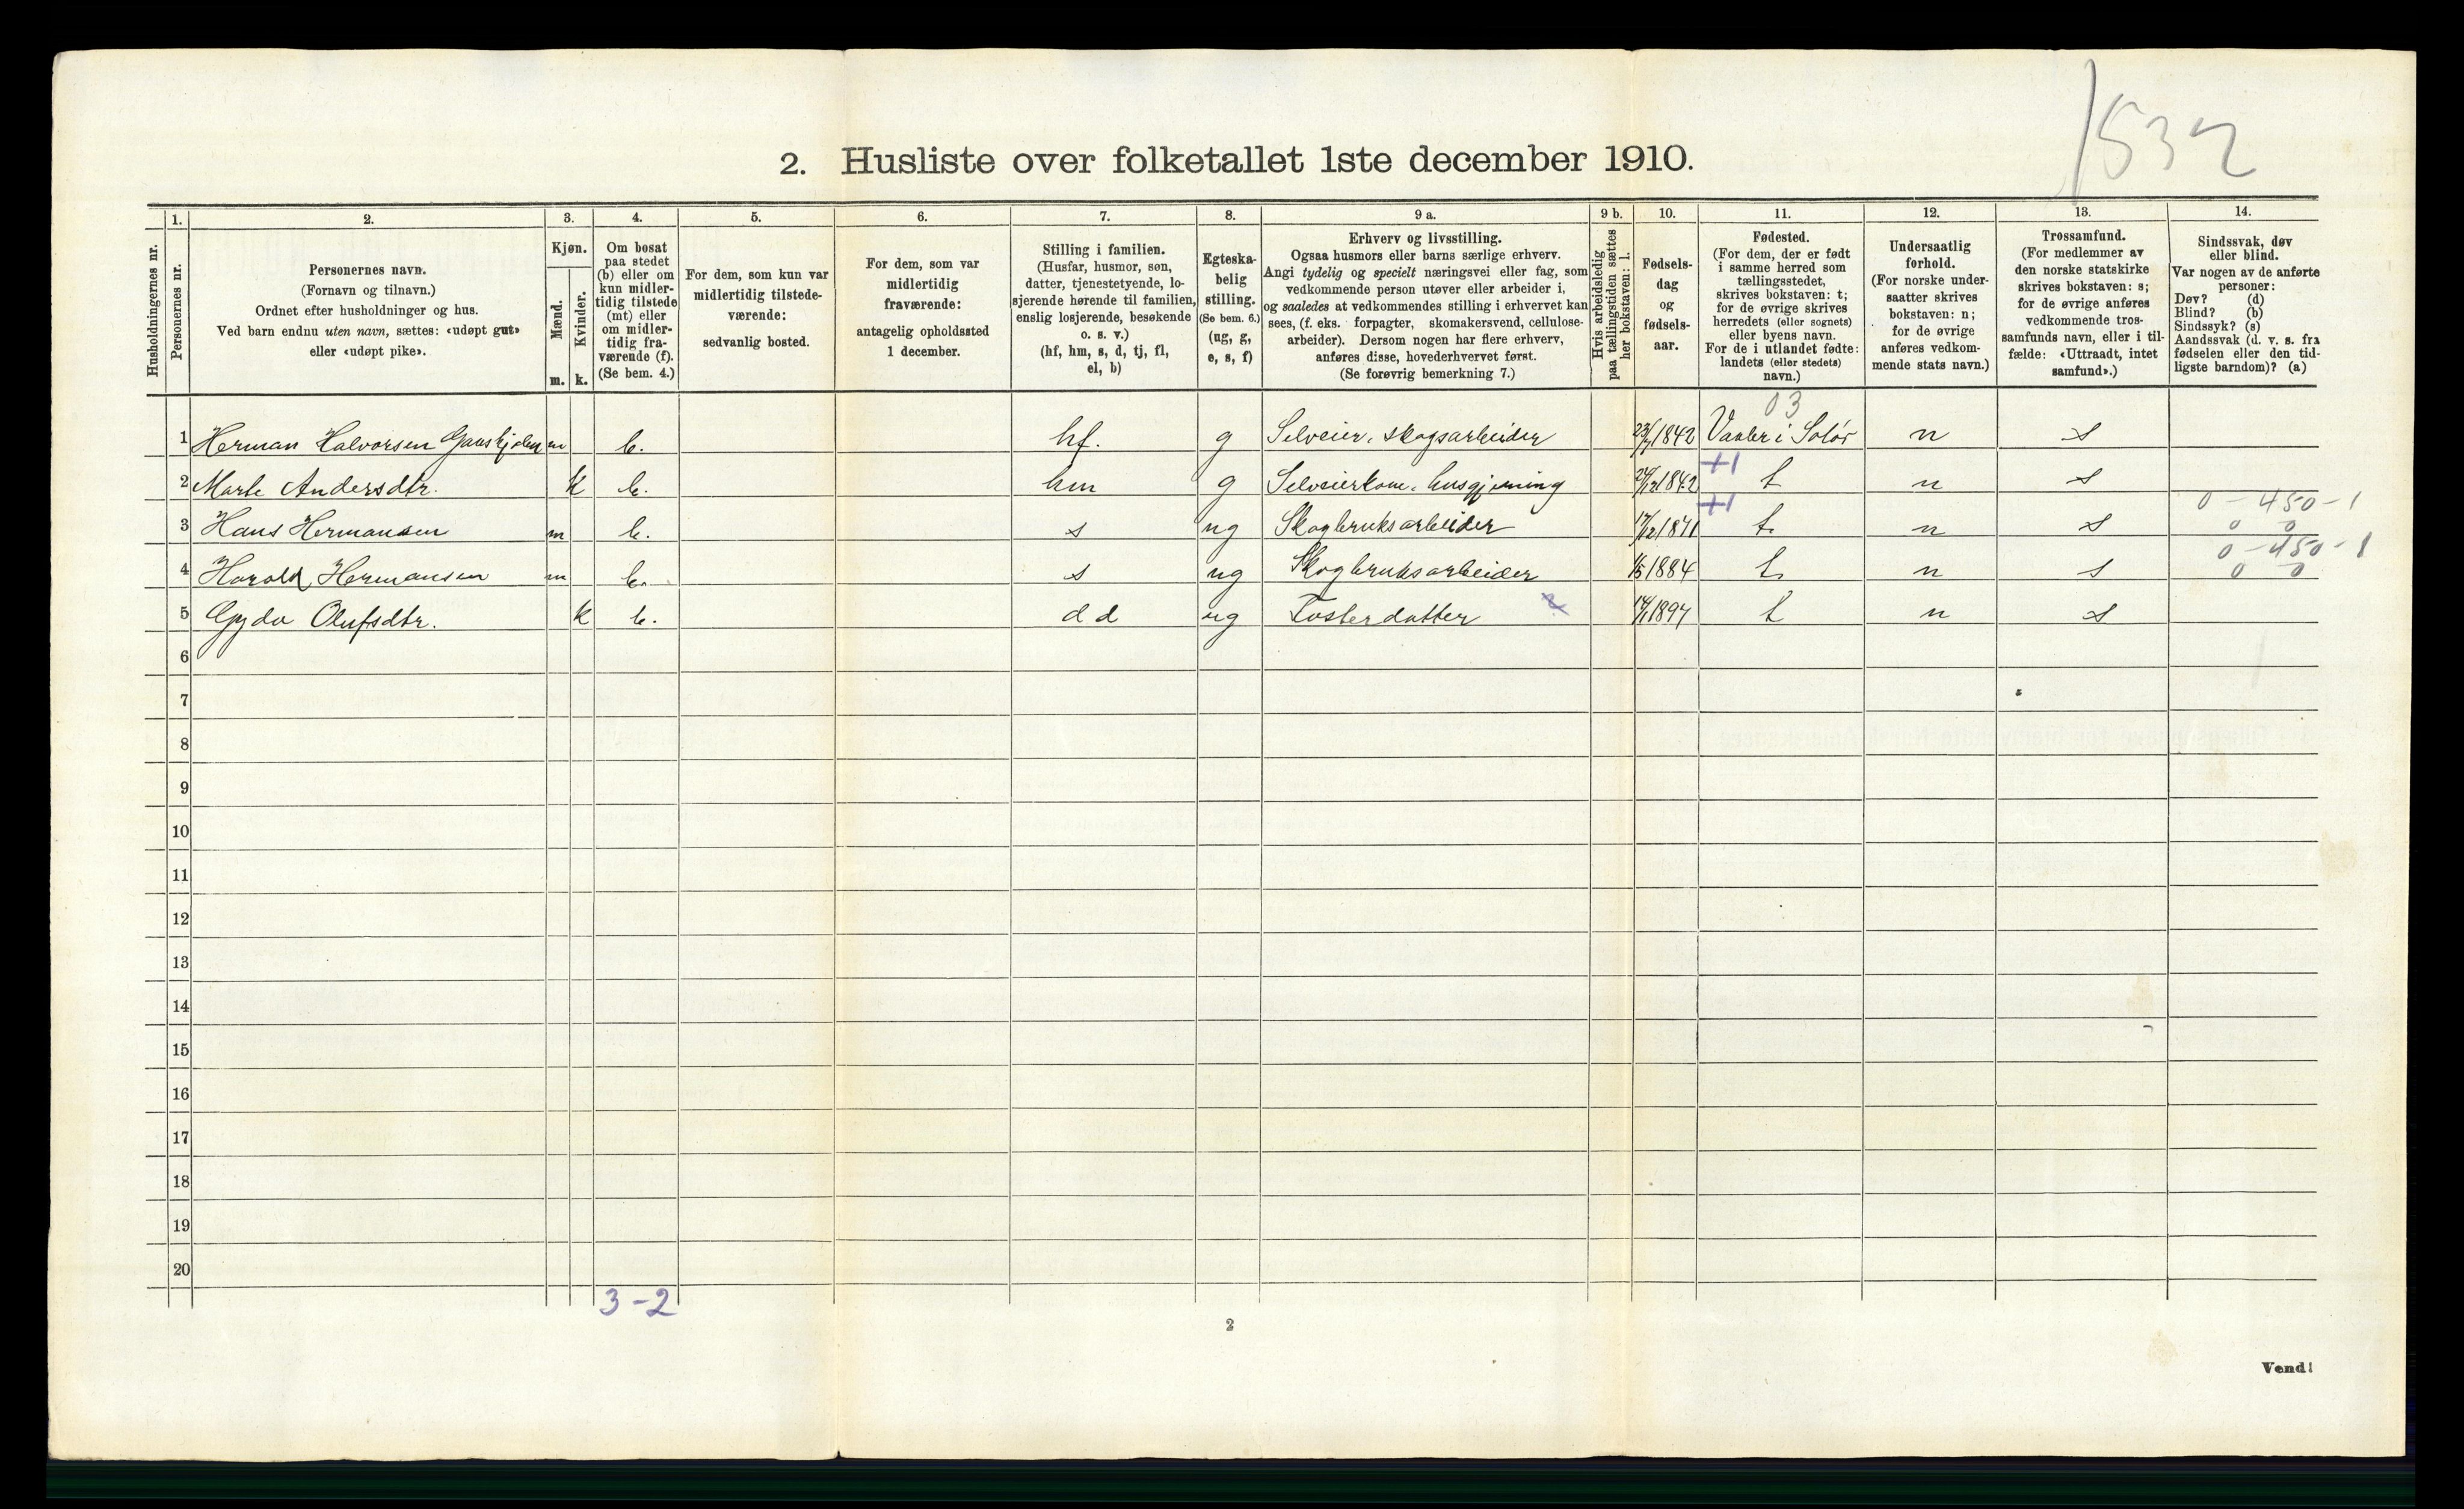 1532
2. Husliste over folketallet 1ste december 1910.
1. 2. 3. 4. 5. 6. 7. 8. 9 a. 9 b. 10. 11. 12. 13. 14.
Husholdningernes nr.
Personernes nr.
Personernes navn.
(Fornavn og tilnavn.)
Ordnet efter husholdninger og hus.
Ved barn endnu uten navn, sættes: «udøpt gut»
eller «udøpt pike».
Kjøn.
Mænd.
Kvinder.
m. k.
Om bosat
paa stedet
(b) eller om
kun midler-
tidig tilstede
(mt) eller
om midler-
tidig fra-
værende (f).
(Se bem. 4.)
For dem, som kun var
midlertidig tilstede-
værende:
sedvanlig bosted.
For dem, som var
midlertidig
fraværende:
antagelig opholdssted
1 december.
Stilling i familien.
(Husfar, husmor, søn,
datter, tjenestetyende, lo-
sjerende hørende til familien,
enslig losjerende, besøkende
o. s. v.)
(hf, hm, s, d, tj, fl,
el, b)
Egteska-
belig
stilling.
(Se bem. 6.)
(ug, g,
e, s, f)
Erhverv og livsstilling.
Ogsaa husmors eller barns særlige erhverv.
Angi tydelig og specielt næringsvei eller fag, som
vedkommende person utøver eller arbeider i,
og saaledes at vedkommendes stilling i erhvervet kan
sees, (f. eks. forpagter, skomakersvend, cellulose-
arbeider). Dersom nogen har flere erhverv,
anføres disse, hovederhvervet først.
(Se forøvrig bemerkning 7.)
Hvis arbeidsledig
paa tællingstiden sættes
her bokstaven: l.
Fødsels-
dag
og
fødsels-
aar.
Fødested.
(For dem, der er født
i samme herred som
tællingsstedet,
skrives bokstaven: t;
for de øvrige skrives
herredets (eller sognets)
eller byens navn.
For de i utlandet fødte:
landets (eller stedets)
navn.)
Undersaatlig
forhold.
(For norske under-
saatter skrives
bokstaven: n;
for de øvrige
anføres vedkom-
mende stats navn.)
Trossamfund.
(For medlemmer av
den norske statskirke
skrives bokstaven: s;
for de øvrige anføres
vedkommende tros-
samfunds navn, eller i til-
fælde: «Uttraadt, intet
samfund».)
Sindssvak, døv
eller blind.
Var nogen av de anførte
personer:
Døv? (d)
Blind? (b)
Sindssyk? (s)
Aandssvak (d. v. s. fra
fødselen eller den tid-
ligste barndom)? (a)
03
1 Herman Halvorsen m b. hf. g Selveier, skogsarbeider 1842 Vaaler i Solør n s
+1
2 Marte Andersdtr. k b. hm g Selveierkone, husgjerning 1842 t n s
+1 0 - 450 - 1
3 Hans Hermansen m b. s ug Skogbruksarbeider 17/12 1871 t. n s 0 0
0 - 450 - 1
4 Harald Hermansen m b. s ug Skogbruksarbeider 1/5 1884 t. n s 0 0
5 Gyda Olufsdtr. k b. d d ug Fosterdatter 14/1 1897 t n s
6
7
8
9
10
11
12
13
14
15
16
17
18
19
20
3 - 2
2
Vend!